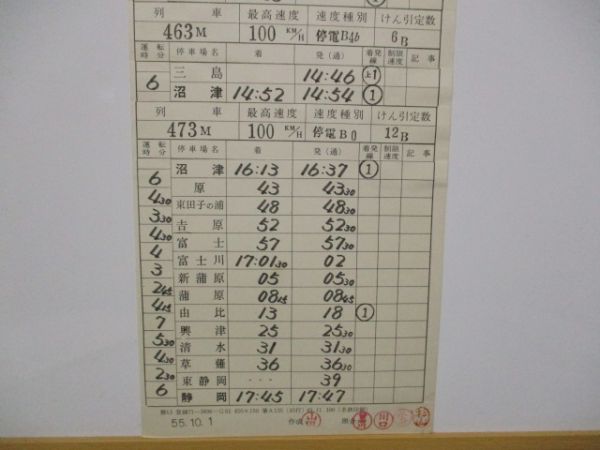 列 車 最高速度 速度種別 けん引定数
463M 100 KM/H 停電B4b 6B
運転時分 停車場名 着 発(通) 着発線 制限速度 記事
三島 14:46 上1
6 沼津 14:52 14:54 ①
列 車 最高速度 速度種別 けん引定数
473M 100 KM/H 停電B0 12B
運転時分 停車場名 着 発(通) 着発線 制限速度 記事
沼津 16:13 16:37 ①
6 原 43 43 30
4 30 東田子の浦 48 48 30
3 30 吉原 52 52 30
4 30 富士 57 57 30
4 富士川 17:01 30 02
3 新蒲原 05 05 30
2 45 蒲原 08 15 08 45
4 15 由比 13 18 ①
7 興津 25 25 30
5 30 清水 31 31 30
4 30 草薙 36 36 30
2 30 東静岡 ... 39
6 静岡 17:45 17:47
55.10.1 作成 山田 川口